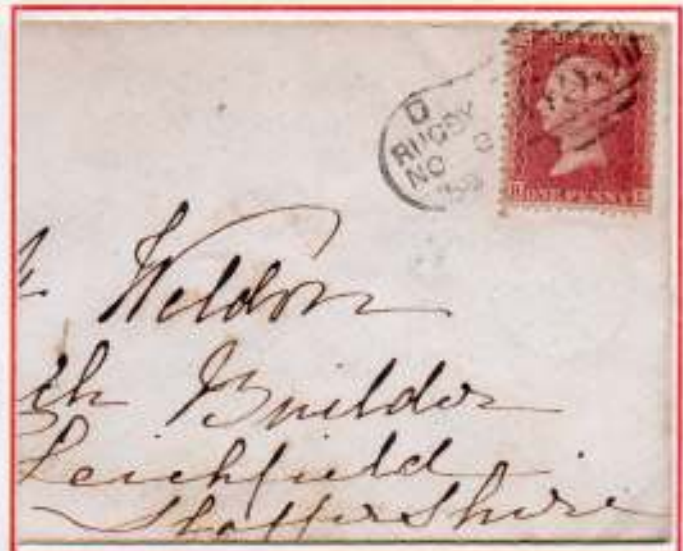 POSTAGE
D
RUGBY
NO 8
ONE PENNY
Weldon
Builder
Leichfield
Staffordshire